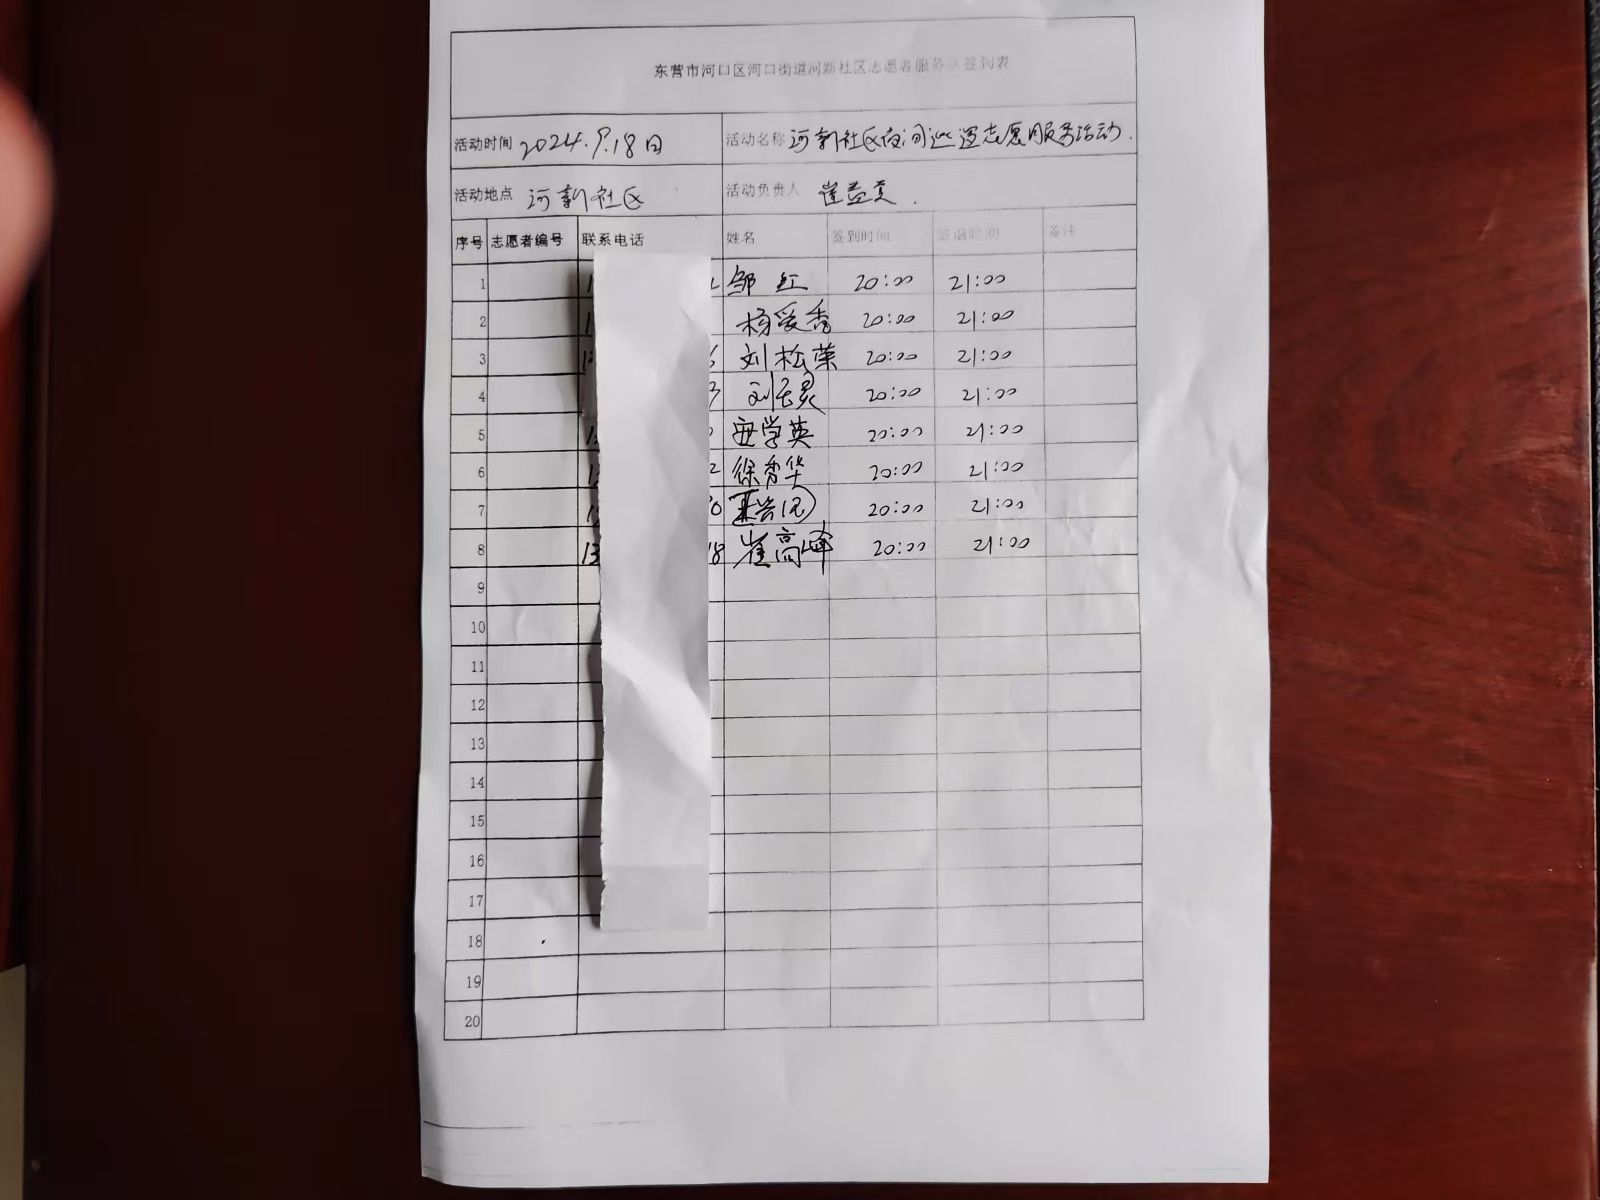 东营市河口区河口街道河新社区志愿者服务队签到表
活动时间 2024.9.18日 活动名称 河新社区夜间巡逻志愿服务活动.
活动地点 河新社区 活动负责人 崔益美.
序号 志愿者编号 联系电话 姓名 签到时间 签退时间 备注
1 1 2 邹红 20:00 21:00
2 1 杨爱香 20:00 21:00
3 1 6 刘松荣 20:00 21:00
4 3 刘 灵 20:00 21:00
5 1 安学英 20:00 21:00
6 1 2 徐秀华 20:00 21:00
7 1 0 20:00 21:00
8 13 18 崔高峰 20:00 21:00
9
10
11
12
13
14
15
16
17
18
19
20